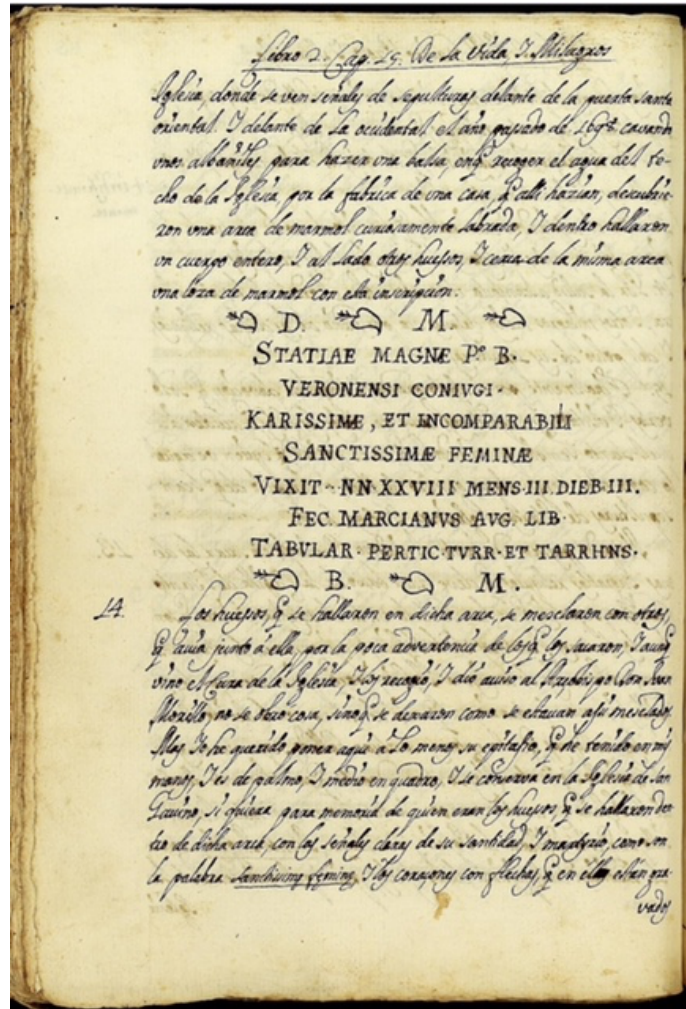 Libro 2. Cap. 15. De la Vida, I Milagros
Iglesia, donde se ven señales de sepulturas delante de la puerta
oriental. I delante de la occidental el año pasado de cavando
unos albañiles para hazer una balsa, en q̃ recoger el agua del te-
cho de la Iglesia, por la fabrica de una casa, q̃ alli hazian, descubrie-
ron una arca de marmol curiosamente labrada, I dentro hallaron
un cuerpo entero, I al lado otros huesos, I cerca de la misma arca
una loza de marmol con esta inscripcion:
D. M.
STATIAE MAGNE P.º B.
VERONENSI CONIVGI.
KARISSIMÆ, ET INCOMPARABILI
SANCTISSIMÆ FEMINÆ
VIXIT NN XXVIII MENS III DIEB III.
FEC MARCIANVS AVG. LIB.
TABVLAR. PERTIC TVRR. ET TARRHNS.
B. M.
14. Los huesos, q̃ se hallaron en dicha arca, se mesclaron con otros,
q̃ avia junto à ella, por la poca advertencia de los q̃ los sacaron, I aunq̃
vino el Cura de la Iglesia, I los recogió, I dió aviso al Arzobispo Don Juan
Morillo, no se obró cosa, sino q̃ se dexaron como se estavan assi mesclados.
Mas Io he querido poner aqui à lo menos su epitafio, q̃ he tenido en mis
manos, I es de palmo, I medio en quadro, I se conserva en la Iglesia de San
Gavino, si quiera para memoria de quien eran los huesos, q̃ se hallaron den-
tro de dicha arca, con las señales claras de su santidad, I martyrio, como son
la palabra I los corazones con flechas, q̃ en ella estàn gra-
vados